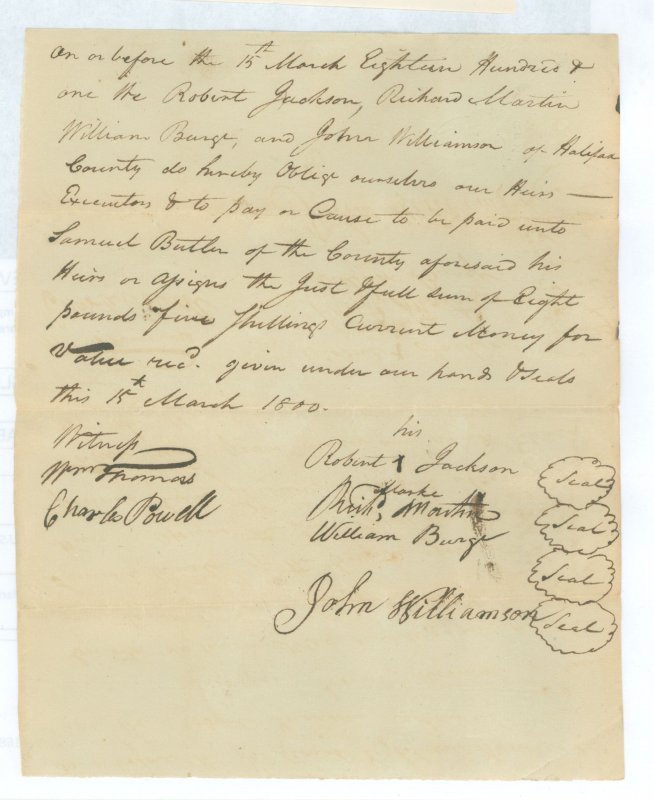 on or before the 15th March Eighteen Hundred &
one We Robert Jackson, Richard Martin
William Burge, and John Williamson of Halifax
County do hereby Oblige ourselves our Heirs —
Executors & to pay or Cause to be paid unto
Samuel Butler of the County aforesaid his
Heirs or assigns the Just & full sum of Eight
pounds five Shillings Current Money for
Value recd. given under our hands & Seals
this 15th March 1800.
Witness
Wm Thomas
Charles Powell
his
Robert X Jackson Seal
Marke
Richd. Martin Seal
William Burge Seal
John Williamson Seal